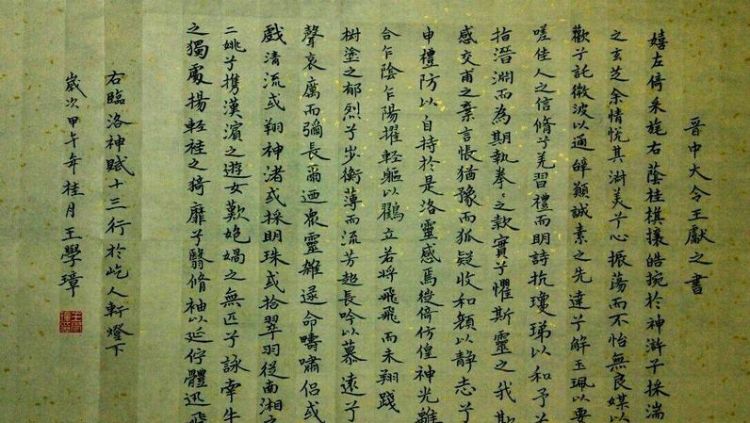 晉中大令王獻之書
嬉左倚采旄右蔭桂旗攘皓捥於神滸兮採湍
之玄芝余情悅其淑美兮心振蕩而不怡無良媒以
歡兮託微波以通辭願誠素之先達兮解玉珮以要
嗟佳人之信脩兮羌習禮而明詩抗瓊珶以和予兮
指潛淵而為期執拳〻之款實兮懼斯靈之我欺
感交甫之棄言悵猶豫而狐疑收和顏以静志兮
申禮防以自持於是洛靈感焉徙倚仿偟神光離
合乍陰乍陽擢輕軀以鶴立若將飛飛而未翔踐
樹塗之郁烈兮步衡薄而流芳超長吟以慕遠兮
聲哀厲而彌長爾迺衆靈雜遝命疇嘯侶或
戲清流或翔神渚或採明珠或拾翠羽從南湘之
二姚兮攜漢濱之遊女歎匏媧之無匹兮詠牽牛
之獨處揚輕袿之猗靡兮翳脩袖以延佇體迅飛
右臨洛神賦十三行於屹人軒燈下
歲次甲午年桂月王學璋